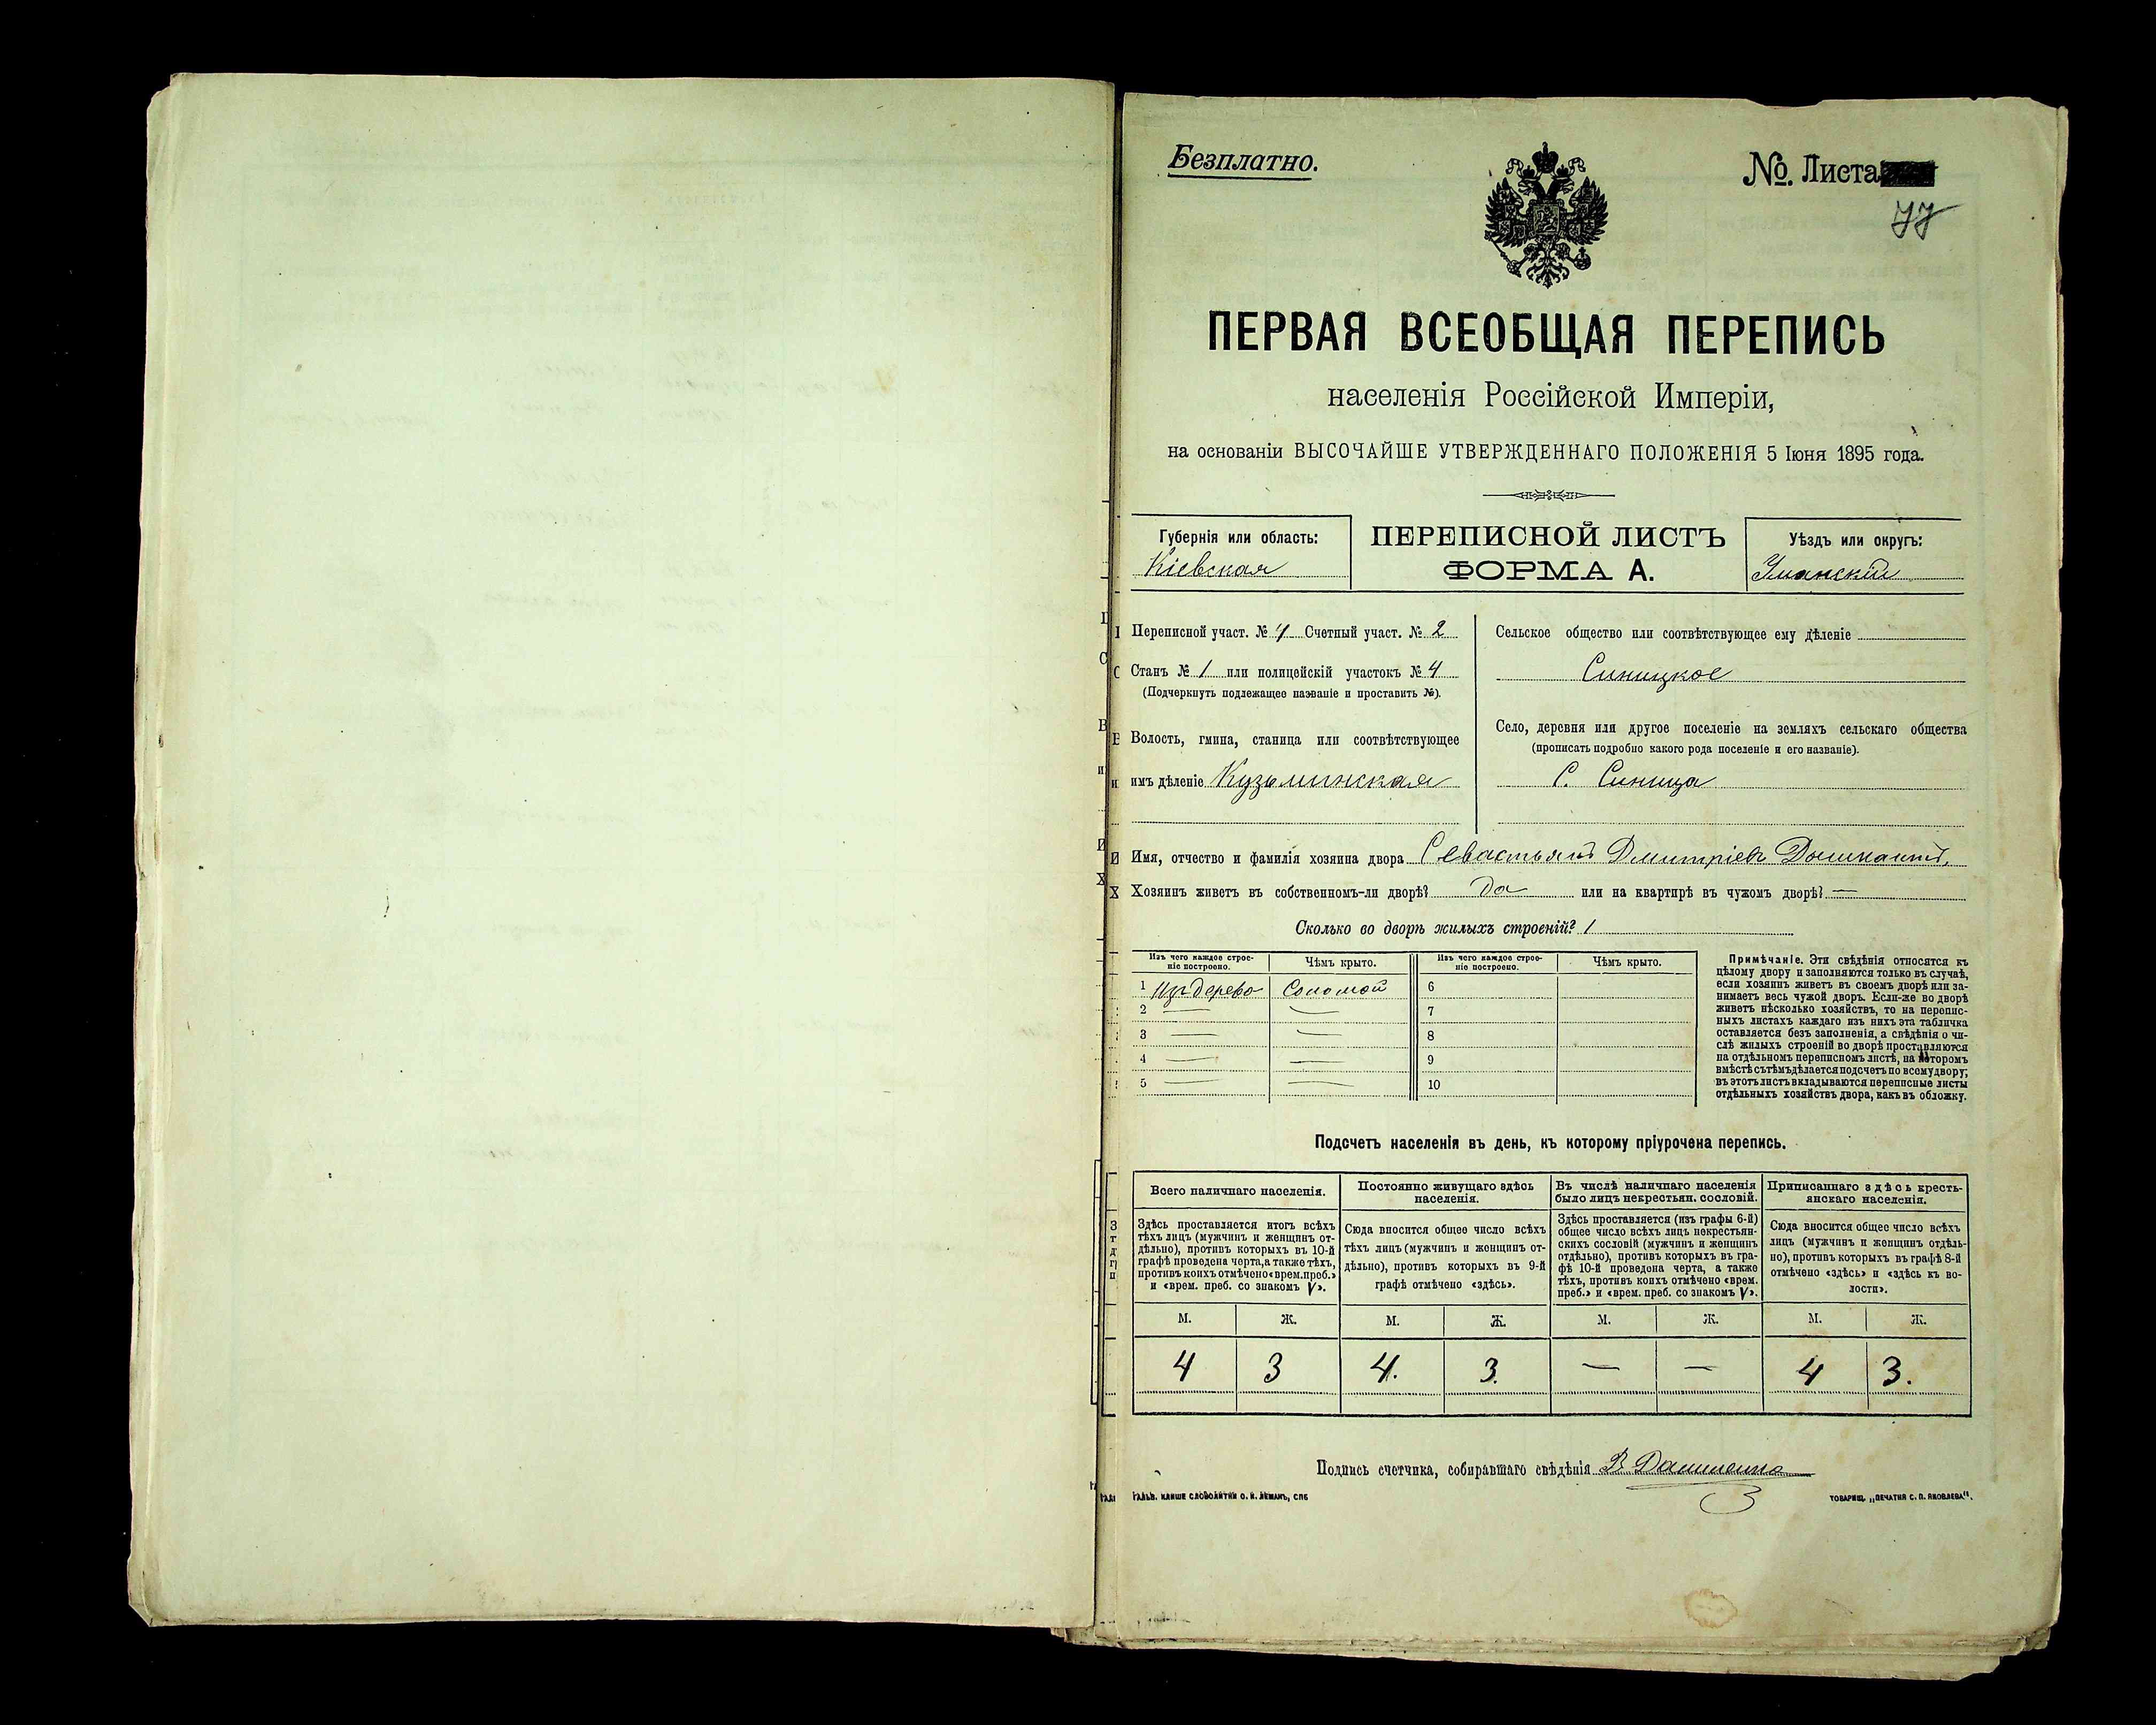 Безплатно.
№ Листа
77
ПЕРВАЯ ВСЕОБЩАЯ ПЕРЕПИСЬ
населенія Россійской Имперіи,
на основаніи ВЫСОЧАЙШЕ УТВЕРЖДЕННАГО ПОЛОЖЕНІЯ 5 Іюня 1895 года.
Губернія или область:
Кіевская
ПЕРЕПИСНОЙ ЛИСТЪ
ФОРМА А.
Уѣздъ или округъ:
Уманскій
Переписной участ. № 4 Счетный участ. № 2
Станъ № 1 или полицейскій участокъ № 4
(Подчеркнуть подлежащее названіе и проставить №).
Волость, гмина, станица или соотвѣтствующее
имъ дѣленіе Кузьминская
Сельское общество или соотвѣтствующее ему дѣленіе
Синицкое
Село, деревня или другое поселеніе на земляхъ сельскаго общества
(прописать подробно какого рода поселеніе и его названіе).
С. Синица
Имя, отчество и фамилія хозяина двора Севастьянъ Дмитріевъ
Хозяинъ живетъ въ собственномъ-ли дворѣ? Да или на квартирѣ въ чужомъ дворѣ? —
Сколько во дворѣ жилыхъ строеній? 1
Изъ чего каждое строе-
ніе построено.
Чѣмъ крыто.
Изъ чего каждое строе-
ніе построено.
Чѣмъ крыто.
1 Изъ дерева Соломой
2 — —
3 — —
4 — —
5 — —
6
7
8
9
10
Примѣчаніе. Эти свѣдѣнія относятся къ
цѣлому двору и заполняются только въ случаѣ,
если хозяинъ живетъ въ своемъ дворѣ или за-
нимаетъ весь чужой дворъ. Если-же во дворѣ
живетъ нѣсколько хозяйствъ, то на перепис-
ныхъ листахъ каждаго изъ нихъ эта табличка
оставляется безъ заполненія, а свѣдѣнія о чи-
слѣ жилыхъ строеній во дворѣ проставляются
на отдѣльномъ переписномъ листѣ, на которомъ
вмѣстѣ съ тѣмъ дѣлается подсчетъ по всему двору;
въ этотъ листъ вкладываются переписные листы
отдѣльныхъ хозяйствъ двора, какъ въ обложку.
Подсчетъ населенія въ день, къ которому пріурочена перепись.
Всего наличнаго населенія.
Здѣсь проставляется итогъ всѣхъ
тѣхъ лицъ (мужчинъ и женщинъ от-
дѣльно), противъ которыхъ въ 10-й
графѣ проведена черта, а также тѣхъ,
противъ коихъ отмѣчено «врем. преб.»
и «врем. преб. со знакомъ V».
Постоянно живущаго здѣсь
населенія.
Сюда вносится общее число всѣхъ
тѣхъ лицъ (мужчинъ и женщинъ от-
дѣльно), противъ которыхъ въ 9-й
графѣ отмѣчено «здѣсь».
Въ числѣ наличнаго населенія
было лицъ некрестьян. сословій.
Здѣсь проставляется (изъ графы 6-й)
общее число всѣхъ лицъ некрестьян-
скихъ сословій (мужчинъ и женщинъ
отдѣльно), противъ которыхъ въ гра-
фѣ 10-й проведена черта, а также
тѣхъ, противъ коихъ отмѣчено «врем.
преб.» и «врем. преб. со знакомъ V».
Приписаннаго здѣсь кресть-
янскаго населенія.
Сюда вносится общее число всѣхъ
лицъ (мужчинъ и женщинъ отдѣль-
но), противъ которыхъ въ графѣ 8-й
отмѣчено «здѣсь» и «здѣсь къ во-
лости».
М. Ж. М. Ж. М. Ж. М. Ж.
4 3 4. 3. — — 4 3.
Подпись счетчика, собиравшаго свѣдѣнія
ГАЛЬВ. КЛИШЕ СЛОВОЛИТНИ О. И. ЛЕМАНЪ, СПБ
ТОВАРИЩ. „ПЕЧАТНЯ С. П. ЯКОВЛЕВА".